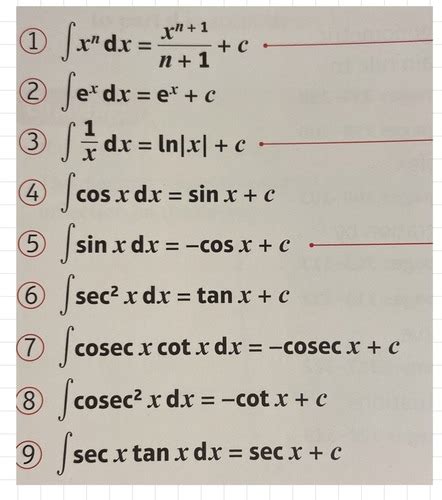 ① ∫xⁿ dx = xⁿ⁺¹/(n + 1) + c
② ∫eˣ dx = eˣ + c
③ ∫1/x dx = ln|x| + c
④ ∫cos x dx = sin x + c
⑤ ∫sin x dx = −cos x + c
⑥ ∫sec² x dx = tan x + c
⑦ ∫cosec x cot x dx = −cosec x + c
⑧ ∫cosec² x dx = −cot x + c
⑨ ∫sec x tan x dx = sec x + c